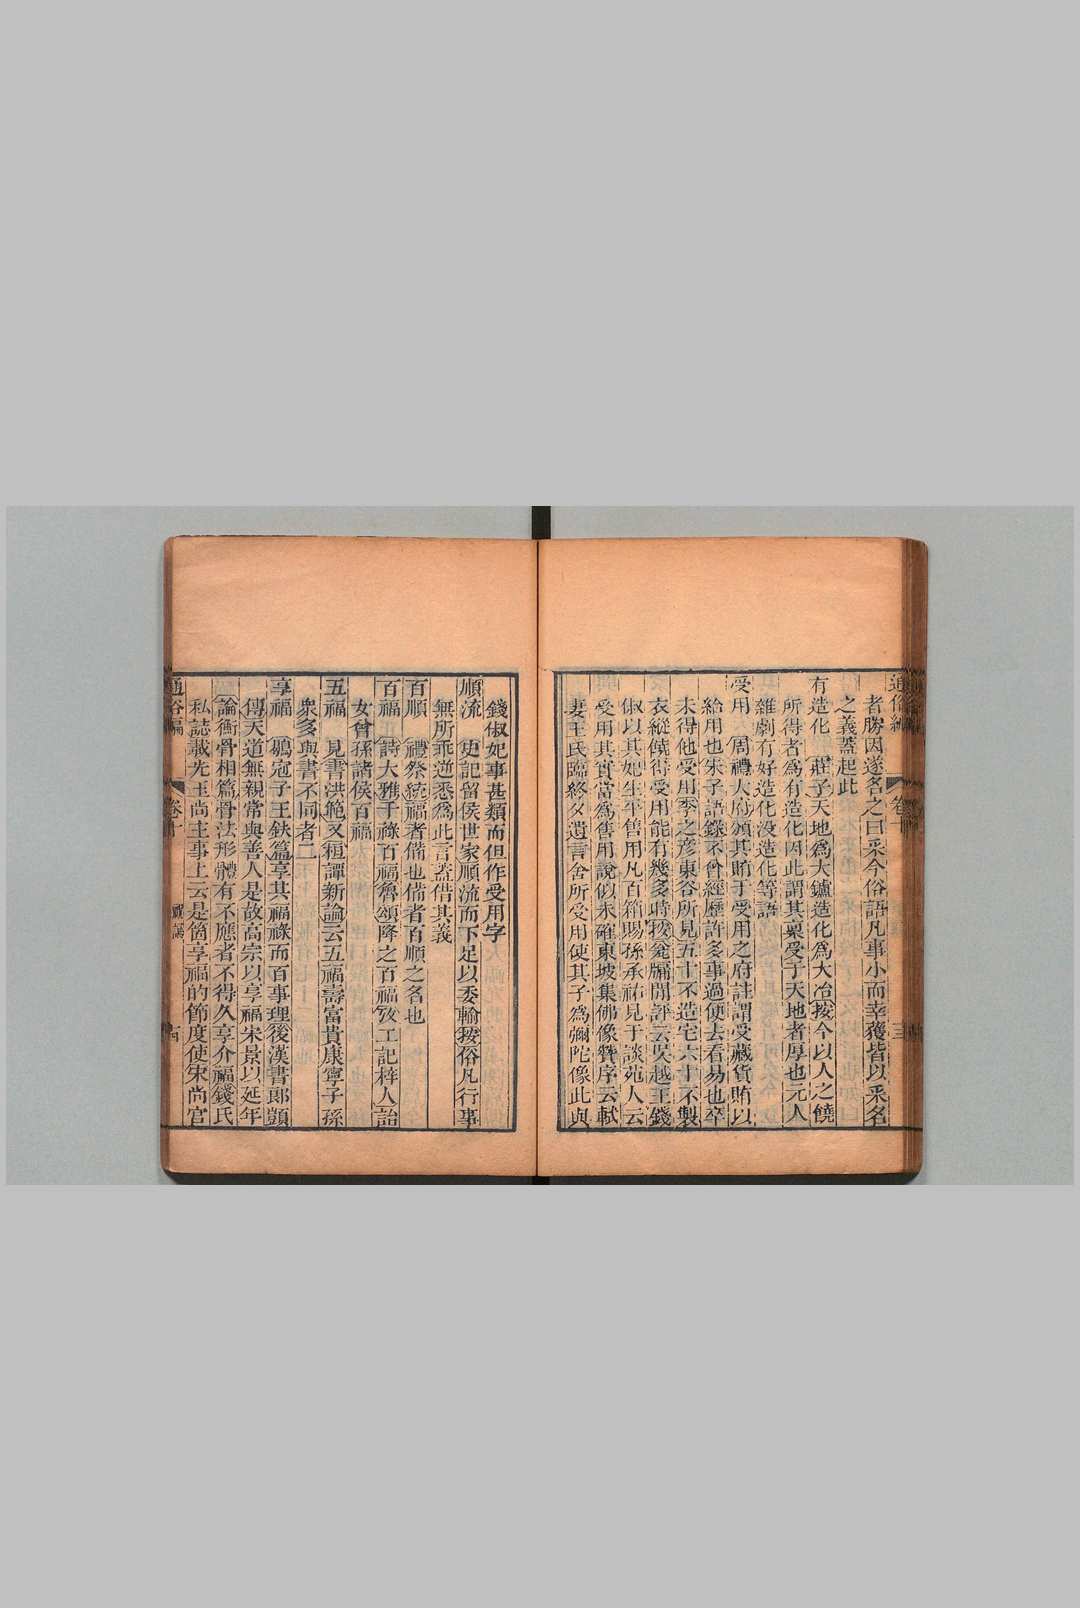 通俗編
卷十
三
者勝因遂名之曰采今俗語凡事小而幸獲皆以采名
之義蓋起此
有造化 莊子天地爲大鑪造化爲大冶按今以人之饒
所得者爲有造化因此謂其稟受于天地者厚也元人
雜劇有好造化没造化等語
受用 周禮大府頒其賄于受用之府註謂受藏貨賄以
給用也朱子語錄不曾經歷許多事過便去看易也卒
未得他受用季之彥東谷所見五十不造宅六十不製
衣縱饒得受用能有幾多時按甕牖閒評云吳越王錢
俶以其妃生平售用凡百箱賜孫承祐見于談苑人云
受用其實當爲售用說似未確東坡集佛像贊序云軾
妻王氏臨終夕遺言舍所受用使其子爲彌陀像此與
錢俶妃事甚類而但作受用字
順流 史記留侯世家順流而下足以委輸按俗凡行事
無所乖逆悉爲此言蓋借其義
百順 禮祭統福者備也備者百順之名也
百福 詩大雅干祿百福魯頌降之百福攷工記梓人詒
女曾孫諸侯百福
五福 見書洪範又桓譚新論云五福壽富貴康寧子孫
衆多與書不同者二
享福 鶡冠子王鈇篇享其福祿而百事理後漢書郞顗
傳天道無親常與善人是故高宗以享福宋景以延年
論衡骨相篇骨法形體有不應者不得久享介福錢氏
私誌載先王尚主事上云是箇享福的節度使宋尚宮
通俗編
卷十